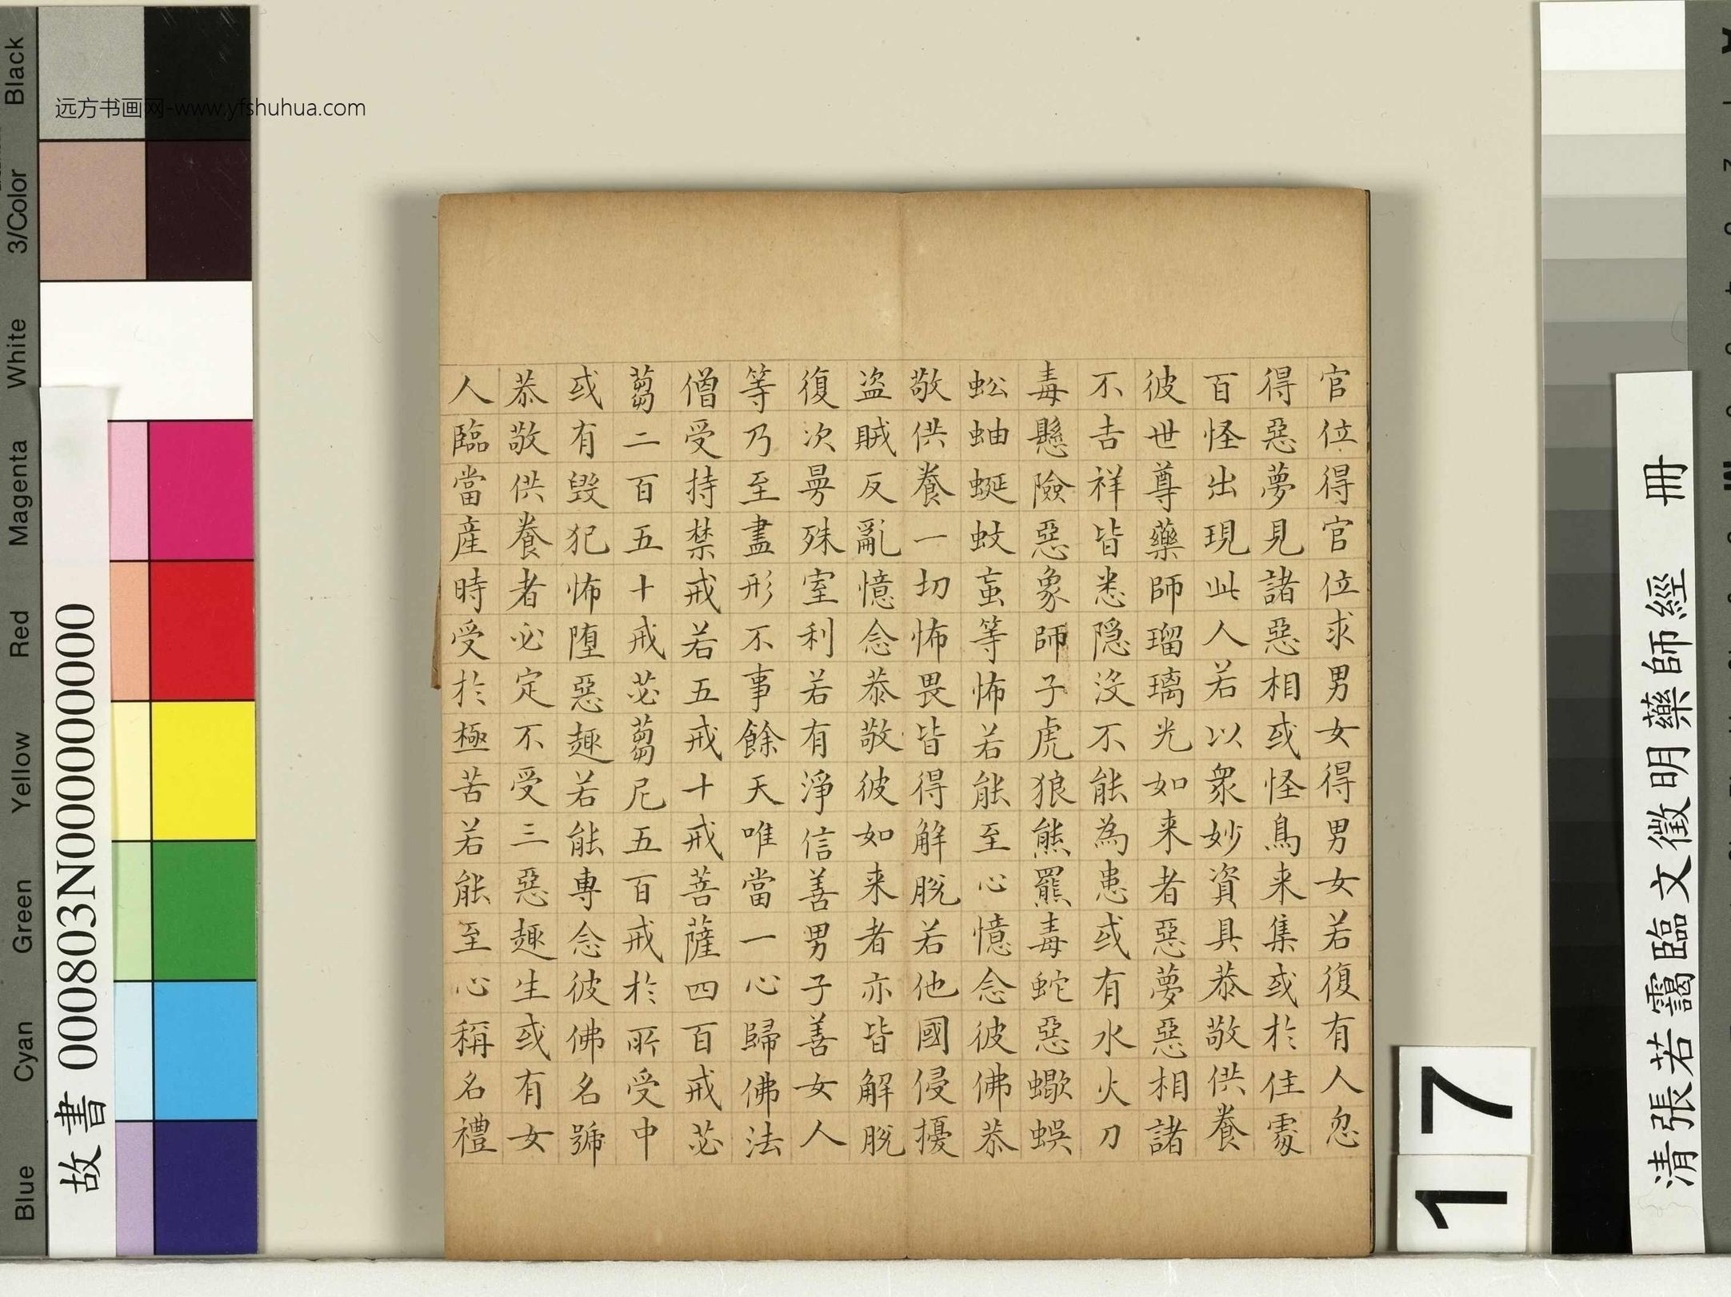 远方书画网-www.yfshuhua.com
官位得官位求男女得男女若復有人忽
得惡夢見諸惡相或怪鳥来集或於住處
百怪出現此人若以衆妙資具恭敬供養
彼世尊藥師瑠璃光如来者惡夢惡相諸
不吉祥皆悉隐没不能為患或有水火刀
毒懸險惡象師子虎狼熊羆毒蛇惡蠍蜈
蚣蚰蜒蚊䖟等怖若能至心憶念彼佛恭
敬供養一切怖畏皆得解脱若他國侵擾
盗賊反亂憶念恭敬彼如来者亦皆解脱
復次曼殊室利若有淨信善男子善女人
等乃至盡形不事餘天唯當一心歸佛法
僧受持禁戒若五戒十戒菩薩四百戒苾
蒭二百五十戒苾蒭尼五百戒於所受中
或有毀犯怖墮惡趣若能專念彼佛名號
恭敬供養者必定不受三惡趣生或有女
人臨當産時受於極苦若能至心稱名禮
清張若靄臨文徵明藥師經 冊
17
17
故書 000803N000000000
Blue
Cyan
Green
Yellow
Red
Magenta
White
3/Color
Black